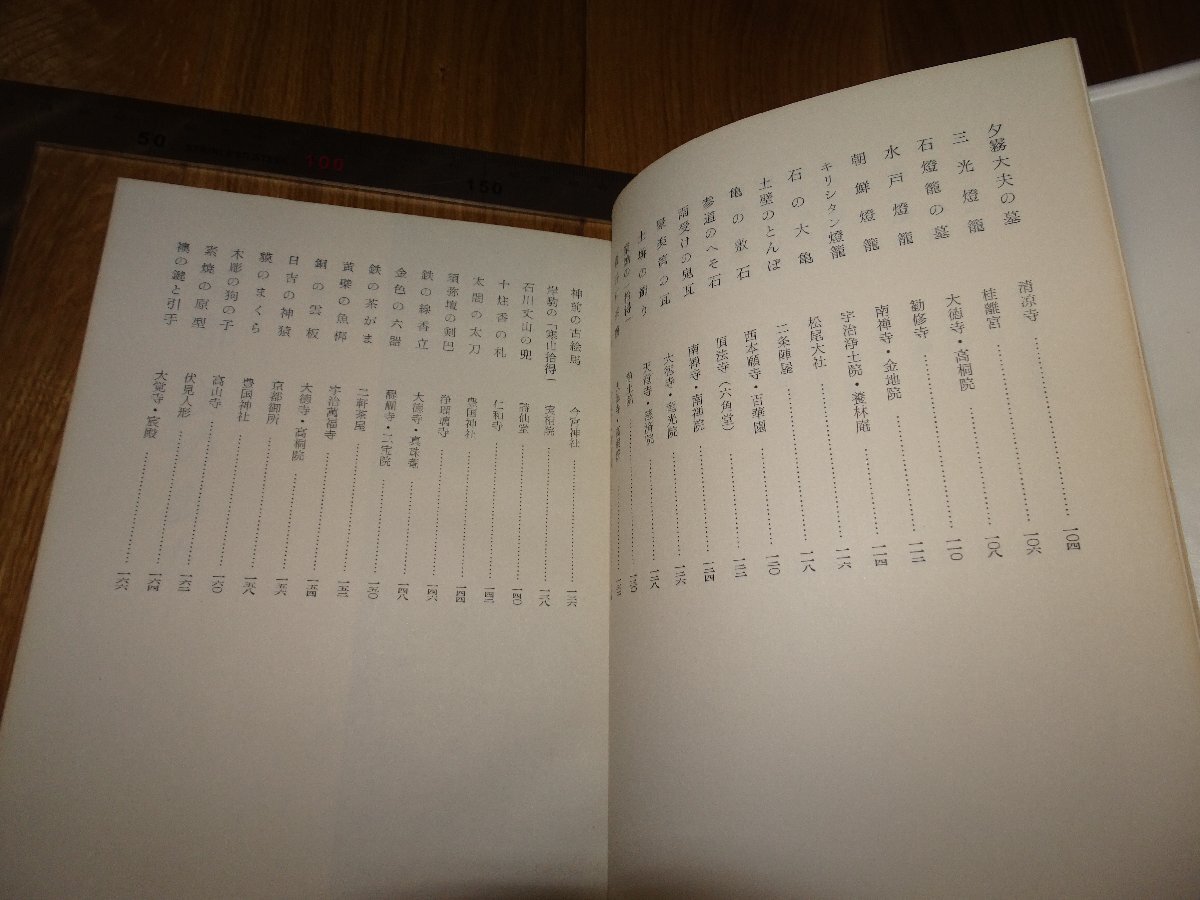 夕霧大夫の墓 清凉寺 一〇四
三光燈籠 桂離宮 一〇六
石燈籠の墓 大徳寺・高桐院 一〇八
水戸燈籠 勧修寺 一一〇
朝鮮燈籠 南禅寺・金地院 一一二
キリシタン燈籠 宇治浄土院・養林庵 一一四
石の大亀 松尾大社 一一六
土壁のとんぼ 二条陣屋 一一八
亀の敷石 西本願寺・百華園 一二〇
参道のへそ石 頂法寺（六角堂） 一二二
雨受けの鬼瓦 南禅寺・南禅院 一二四
大徳寺 一二六
土塀の 天竜寺・慈済院 一二八
一三〇
神前の古絵馬 今宮神社 一三六
岸駒の「寒山拾得」 実相院 一三八
石川丈山の兜 詩仙堂 一四〇
十炷香の札 仁和寺 一四二
太閤の太刀 豊国神社 一四四
須弥壇の剣巴 浄瑠璃寺 一四六
鉄の線香立 大徳寺・真珠庵 一四八
金色の六器 醍醐寺・三宝院 一五〇
鉄の茶がま 二軒茶屋 一五二
黄檗の魚梆 宇治萬福寺 一五四
銅の雲板 大徳寺・高桐院 一五六
日吉の神猿 京都御所 一五八
獏のまくら 豊国神社 一六〇
木彫の狗の子 高山寺 一六二
素焼の原型 伏見人形 一六四
襖の鍵と引手 大覚寺・宸殿 一六六
50
100
150